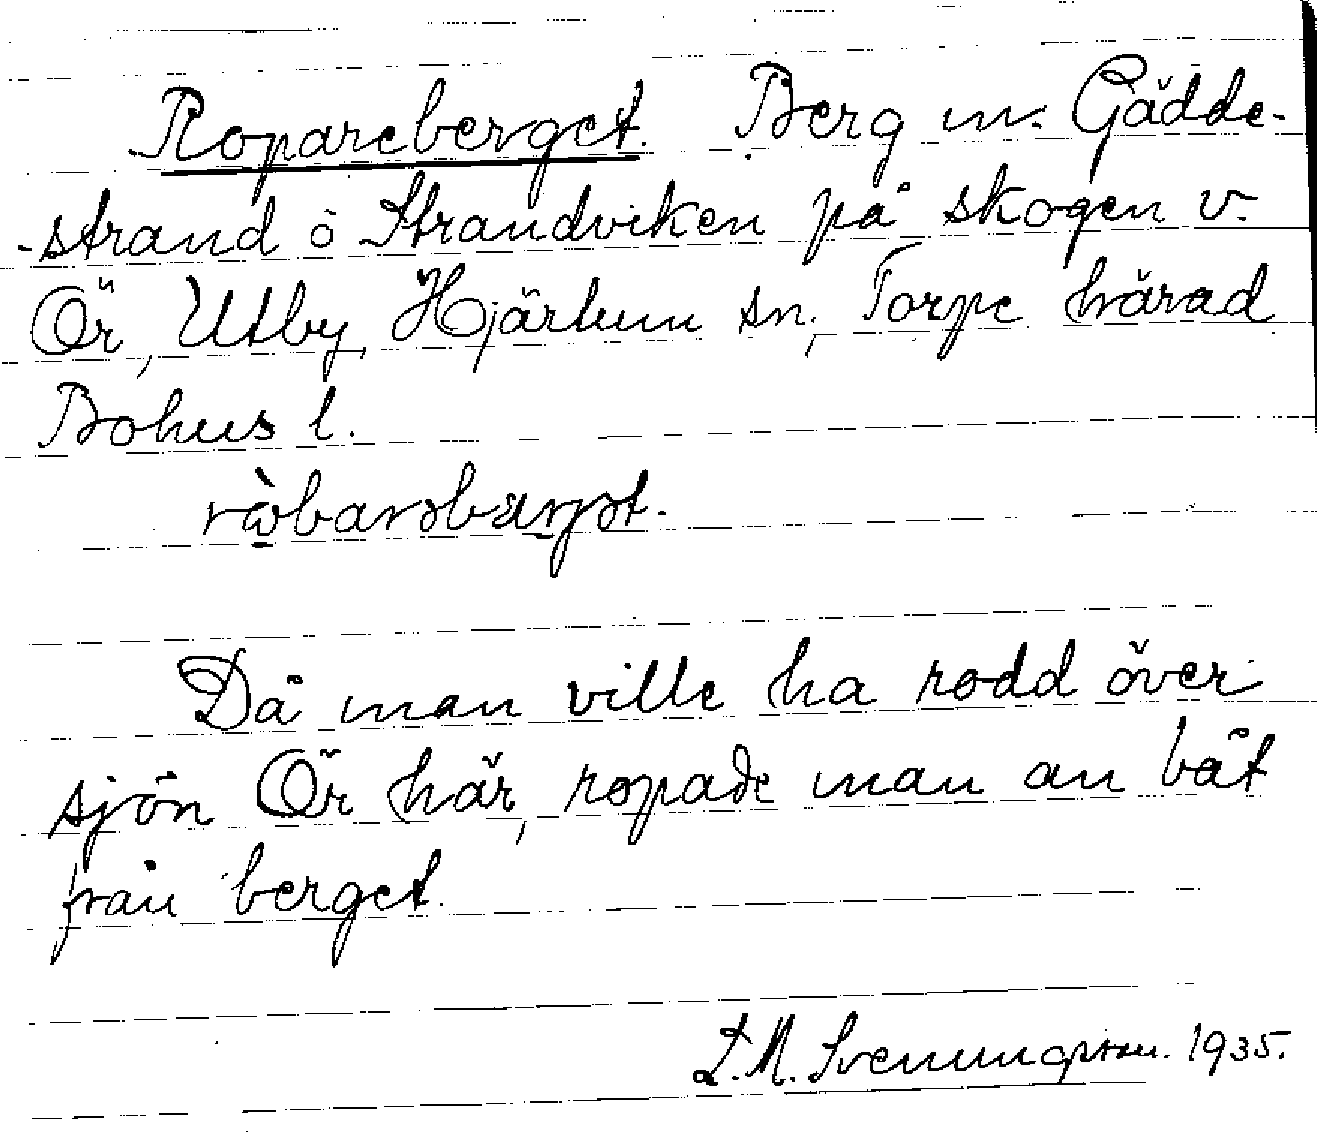 Ropareberget. Berg m. Gädde-
-strand o Strandviken på skogen v.
Ör, Utby, Hjärtum sn, Torpe härad
Bohus l.
rὼbarəbærjət.
Då man ville ha rodd över
sjön Ör här, ropade man an båt
från berget.
L.M. Svenungsson. 1935.